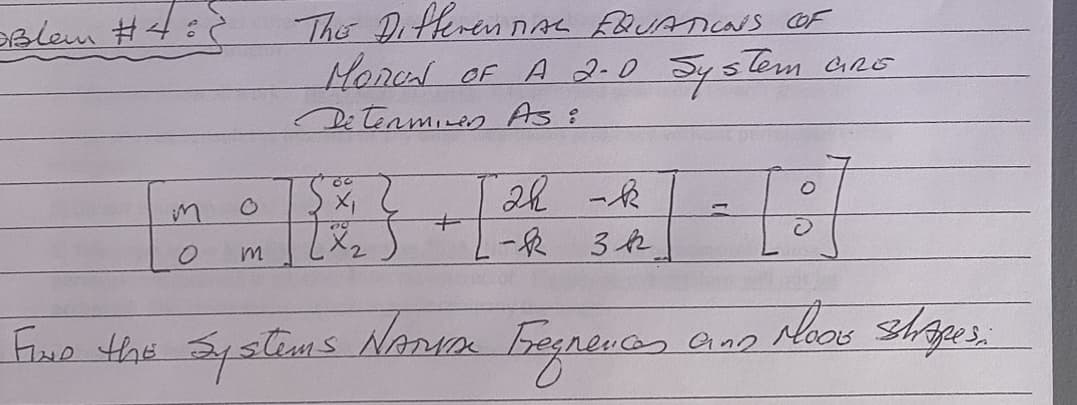 oblem #4:} The Differential Equations OF
Motion OF A 2-D System are
Determined As:
[m 0 0 m] {ẍ₁ ẍ₂} + [2k -k -k 3k] = [0 0]
Find the Systems Natural Freqnencies and Mode Shapes.